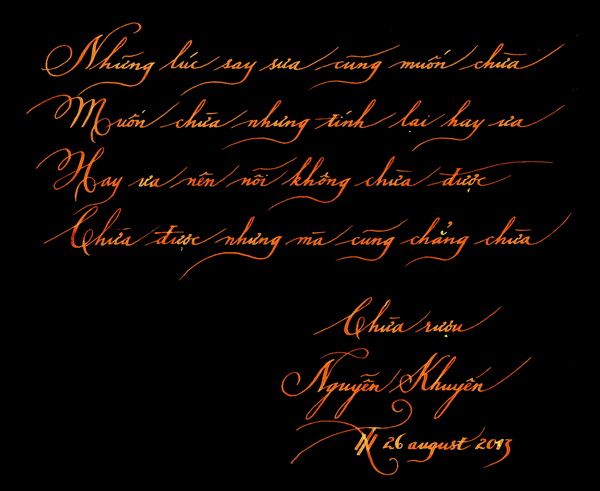 Những lúc say sưa cũng muốn chừa
Muốn chừa nhưng tính lại hay ưa
Hay ưa nên nỗi không chừa được
Chừa được nhưng mà cũng chẳng chừa
Chừa rượu
Nguyễn Khuyến
26 august 2013